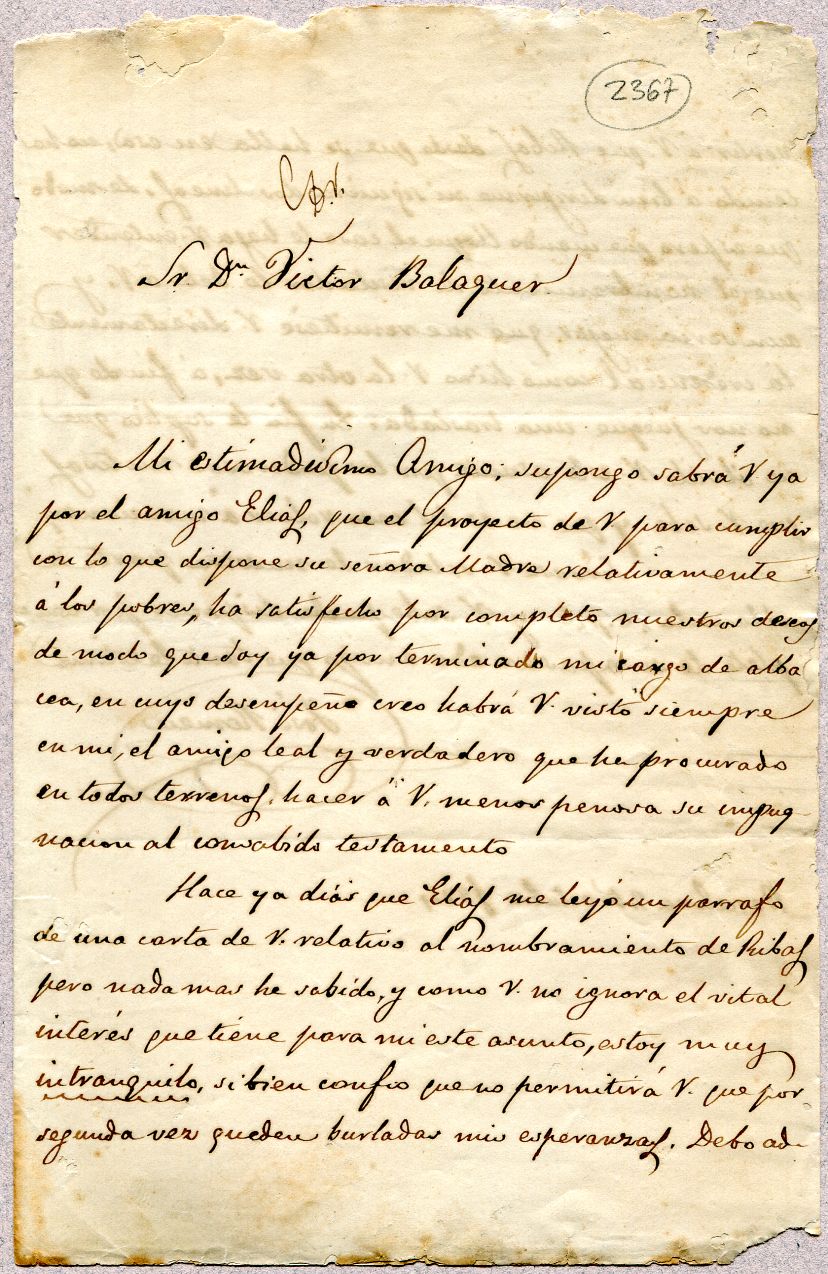 2367
Sr. Dn. Victor Balaguer
Mi estimadisimo Amigo; supongo sabrá V ya
por el amigo Elias, que el proyecto de V para cumplir
con lo que dispone su señora Madre relativamente
á los pobres, ha satisfecho por completo nuestros deseos
de modo que doy ya por terminado mi cargo de alba
cea, en cuyo desempeño creo habrá V. visto siempre
en mi, el amigo leal y verdadero que ha procurado
en todos terrenos, hacer á V. menos penosa su impug-
nacion al consabido testamento
Hace ya dias que Elias me leyó un parrafo
de una carta de V. relativo al nombramiento de Ribas
pero nada mas he sabido, y como V. no ignora el vital
interés que tiene para mi este asunto, estoy muy
intranquilo, si bien confio que no permitirá V. que por
segunda vez queden burladas mis esperanzas. Debo ad-